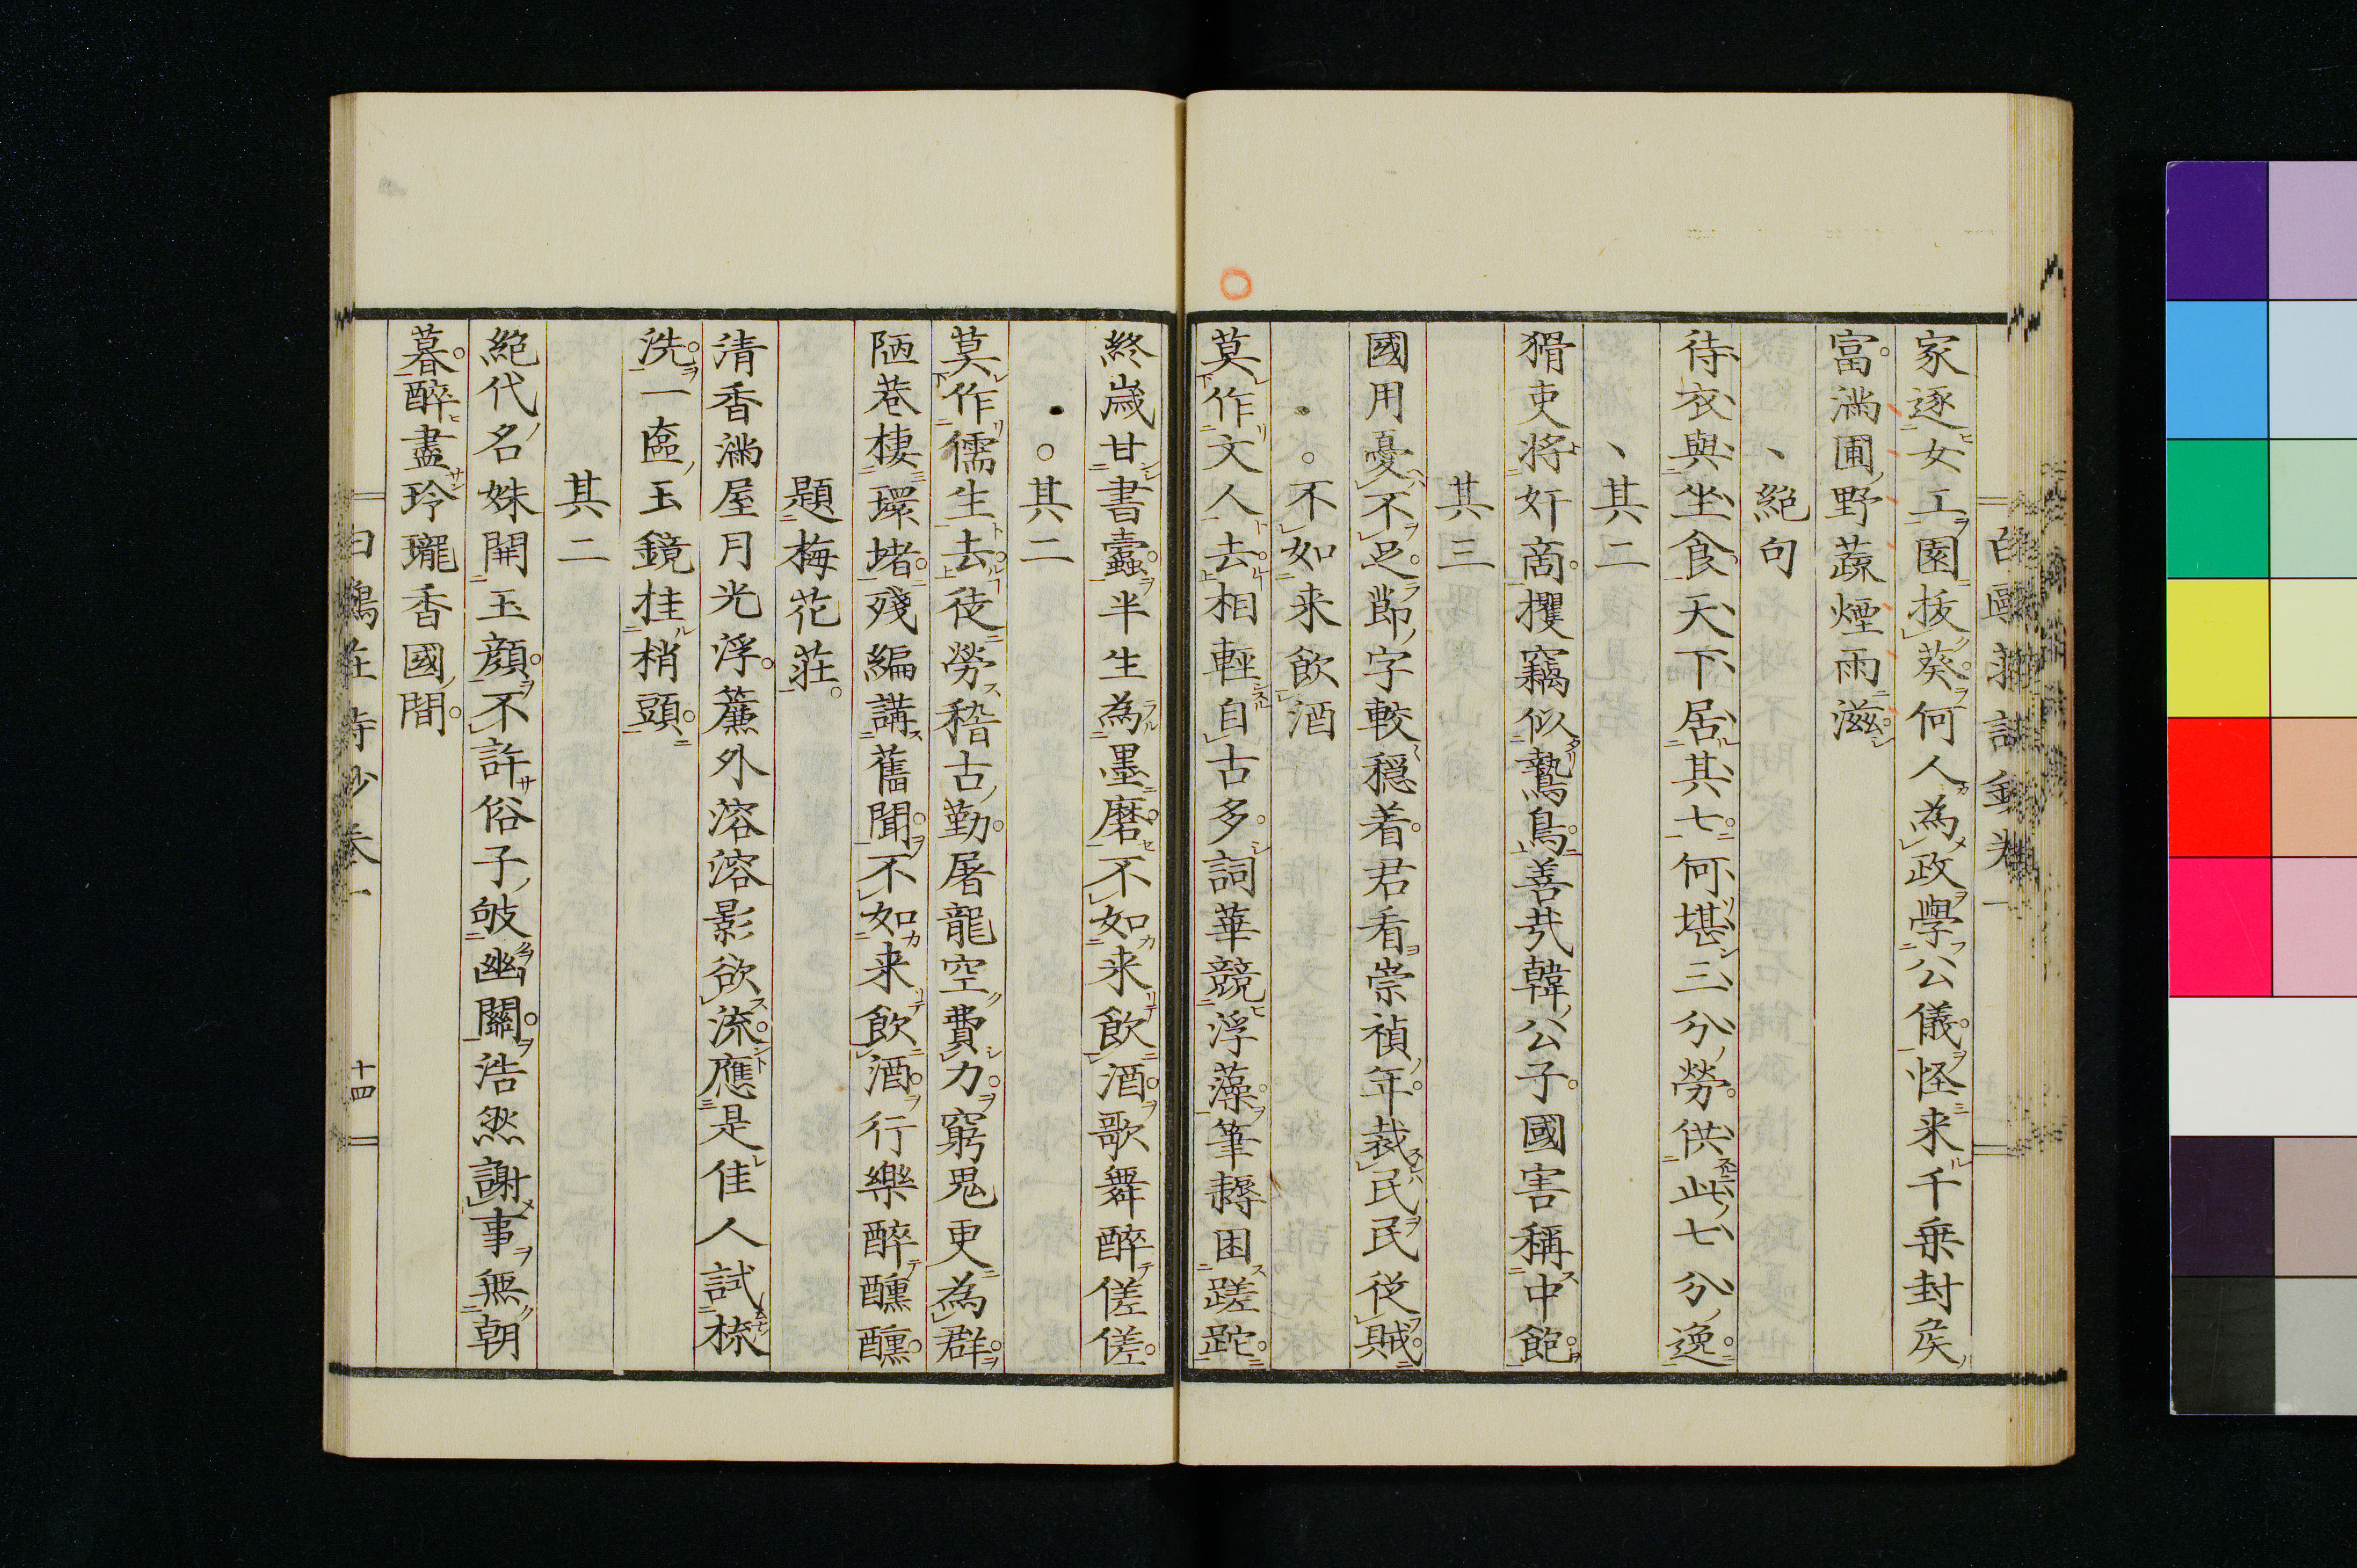 家逐女工園拔葵何人為政學公儀怪来千乗封矦
富滿圃野蔬煙雨滋
絕句
待衣與坐食天下居其七何堪三分勞供此七分逸
其二
猾吏將奸商攫竊似鷙鳥善哉韓公子國害稱中飽
其三
國用憂不足節字較穏着君看崇禎年裁民民從賊
不如来飲酒
莫作文人去相輕自古多詞華競浮藻筆耨困蹉跎
終歲甘書蠹半生為墨磨不如来飲酒歌舞醉傞傞
其二
莫作儒生去徒勞稽古勤屠龍空費力窮鬼更為群
陋巷棲環堵殘編講舊聞不如来飲酒行樂醉醺醺
題梅花莊
清香滿屋月光浮簾外溶溶影欲流應是佳人試梳
洗一奩玉鏡挂梢頭
其二
絕代名姝開玉顏不許俗子皷幽關浩然謝事無朝
暮醉盡玲瓏香國間
十四